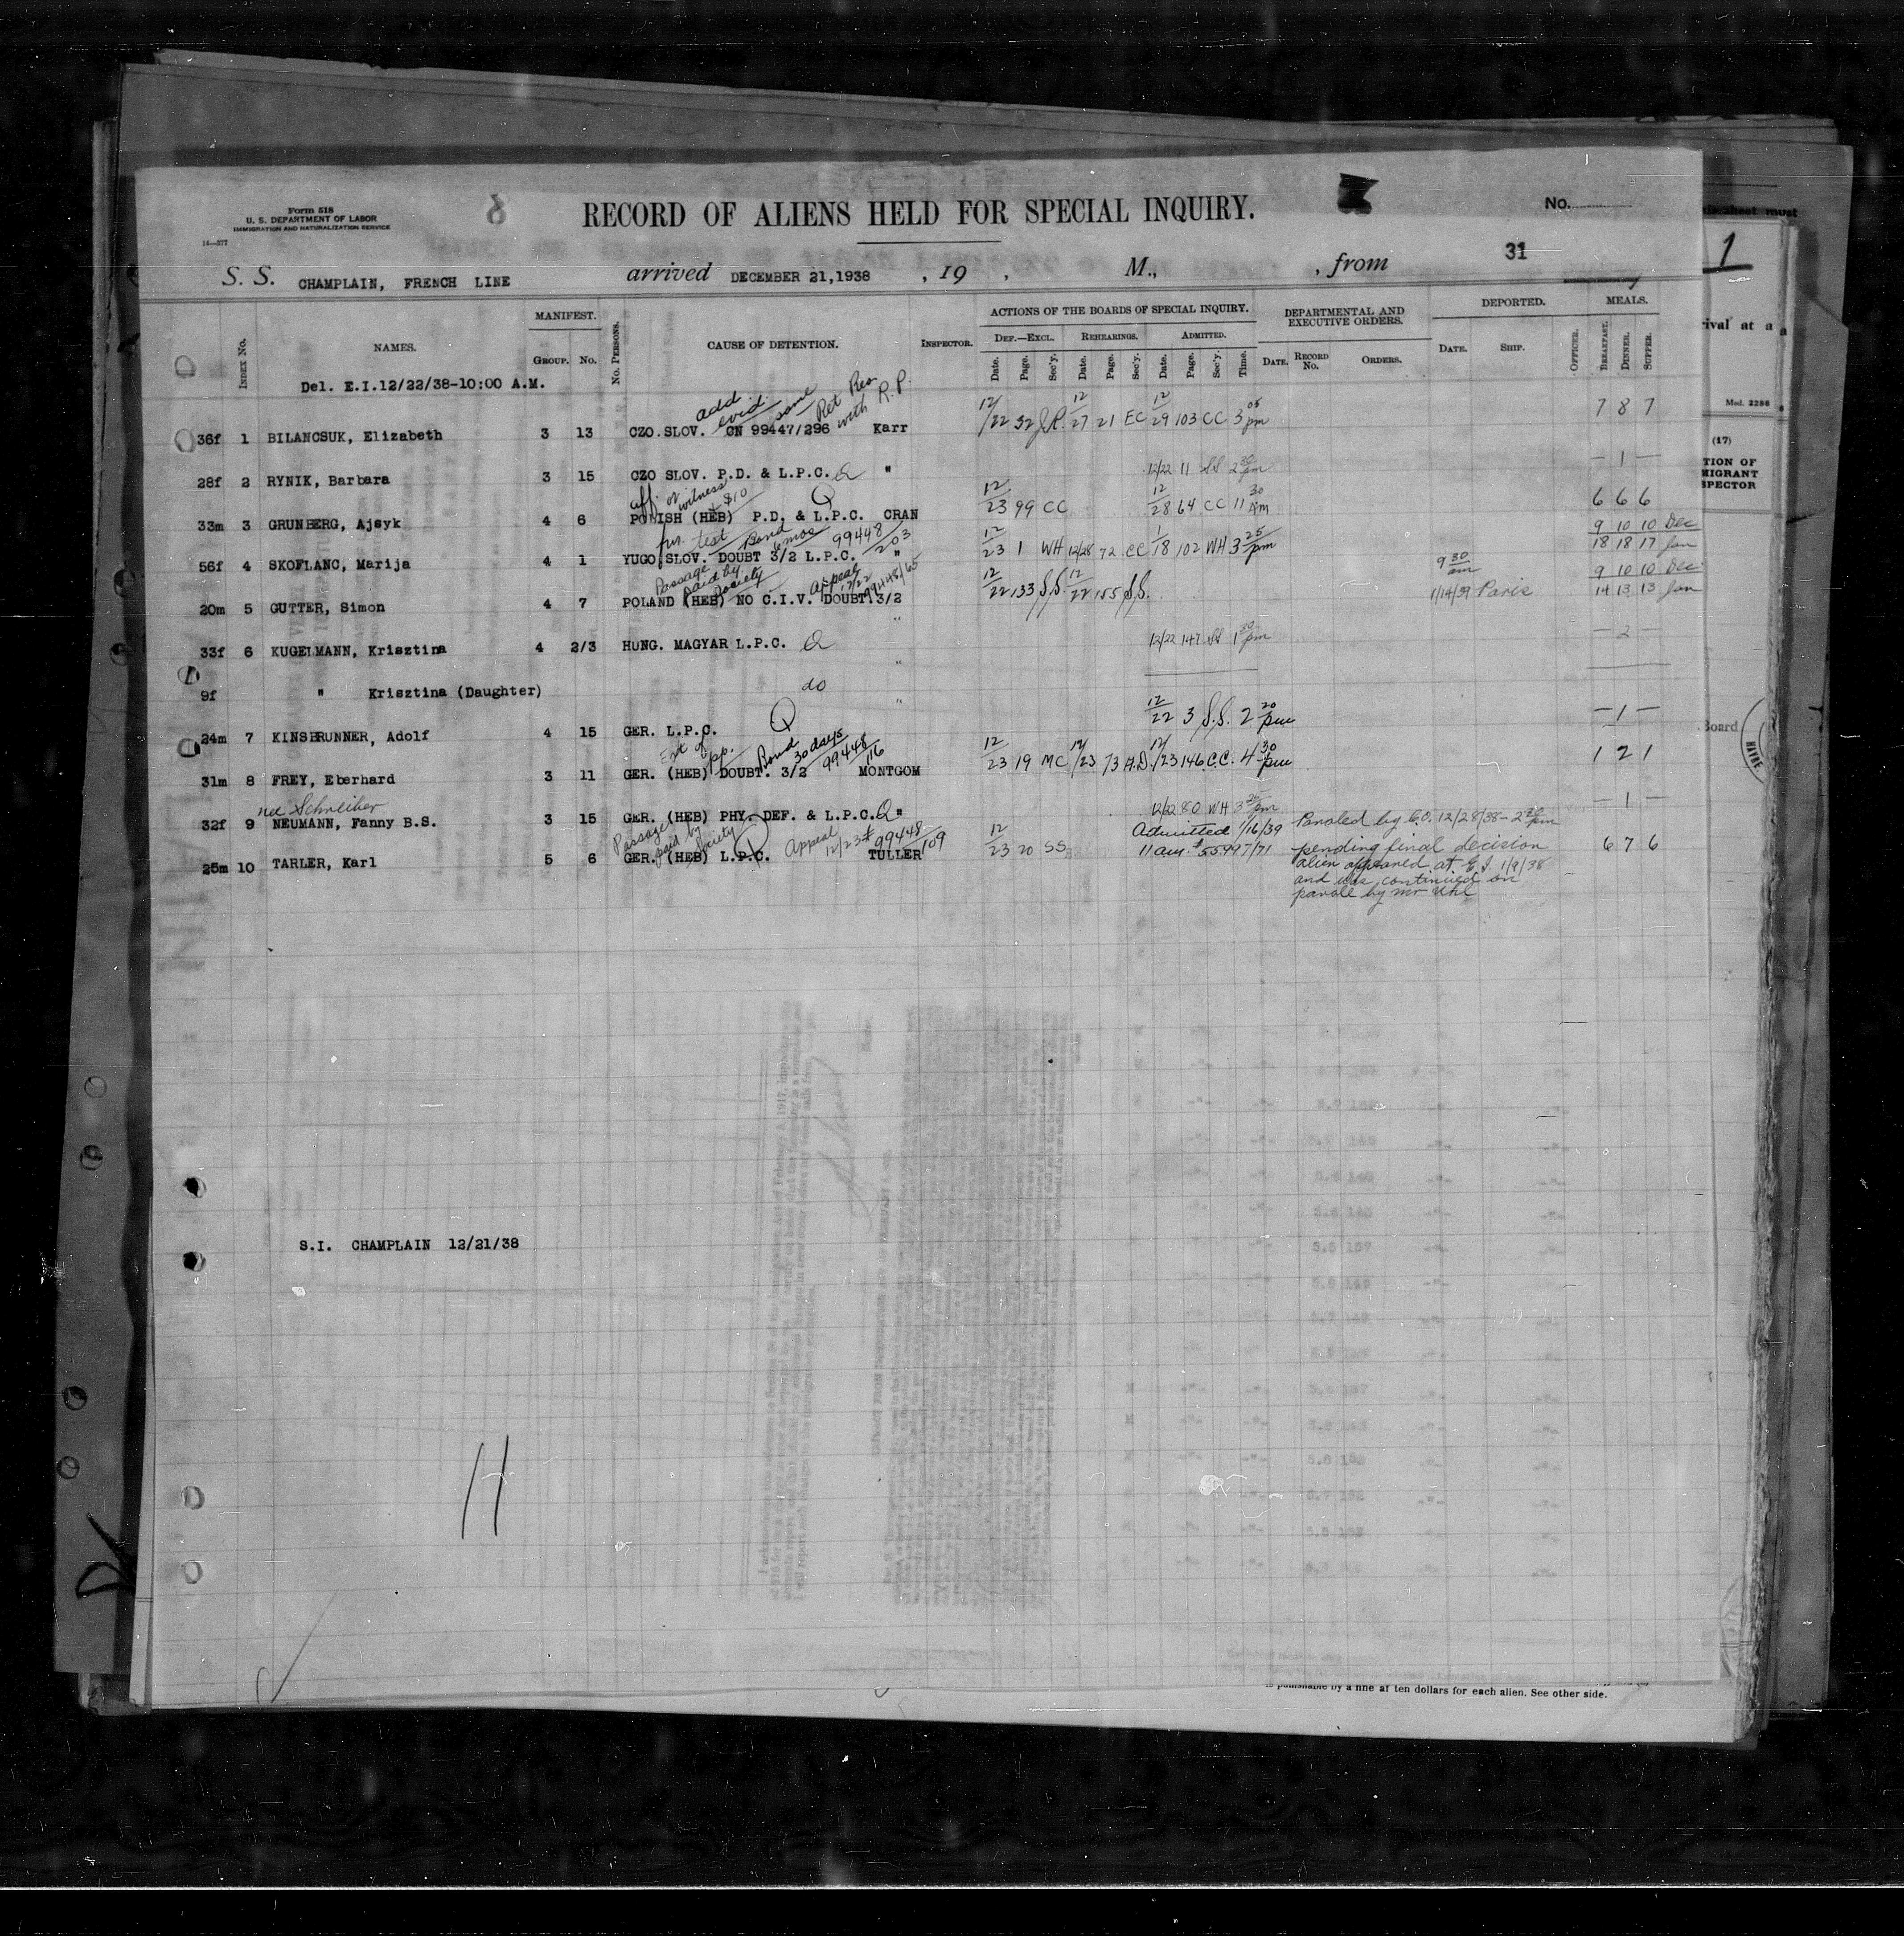 Form 518
U. S. DEPARTMENT OF LABOR
IMMIGRATION AND NATURALIZATION SERVICE
14—277
8
RECORD OF ALIENS HELD FOR SPECIAL INQUIRY.
No.
31
S. S. CHAMPLAIN, FRENCH LINE arrived DECEMBER 21,1938 , 19 , M., , from
INDEX No. NAMES. MANIFEST. GROUP. No. No. PERSONS. CAUSE OF DETENTION. INSPECTOR. ACTIONS OF THE BOARDS OF SPECIAL INQUIRY. DEPARTMENTAL AND EXECUTIVE ORDERS. DEPORTED. MEALS.
DEF.—EXCL. REHEARINGS. ADMITTED.
Date. Page. Sec'y. Date. Page. Sec'y. Date. Page. Sec'y. Time. DATE. RECORD No. ORDERS. DATE. SHIP. OFFICER. BREAKFAST. DINNER. SUPPER.
Del. E.I.12/22/38-10:00 A.M.
add. evid. same Ret Rea with R.P.
36f 1 BILANCSUK, Elizabeth 3 13 CZO.SLOV. CN 99447/296 Karr 12/22 32 J.R. 12/27 21 EC 12/29 103 CC 3 05 pm 7 8 7
28f 2 RYNIK, Barbara 3 15 CZO SLOV. P.D. & L.P.C. Q " 12/22 11 SS 2 30 pm — 1 —
aff. or witness + $10 Q
33m 3 GRUNBERG, Ajsyk 4 6 POLISH (HEB) P.D. & L.P.C. CRAN 12/23 99 CC 12/28 64 CC 11 30 Am 6 6 6
fur. test Bond 6 mos 99448/203
56f 4 SKOFLANC, Marija 4 1 YUGO.SLOV. DOUBT 3/2 L.P.C. " 12/23 1 WH 12/28 72 CC 1/18 102 WH 3 25 pm 9 10 10 Dec 18 18 17 Jan
Passage paid by society Appeal 12/22 99448/65
20m 5 GUTTER, Simon 4 7 POLAND (HEB) NO C.I.V. DOUBT.3/2 " 12/22 133 S.S. 12/22 155 S.S. 9 30 am 1/14/39 Paris 9 10 10 Dec 14 13 13 Jan
33f 6 KUGELMANN, Krisztina 4 2/3 HUNG. MAGYAR L.P.C. Q " 12/22 147 SS 1 30 pm — 2 —
9f " Krisztina (Daughter) do "
24m 7 KINSBRUNNER, Adolf 4 15 GER. L.P.C. Q 12/22 3 S.S. 2 20 pm — 1 —
Ext of pp. Bond 30 days 99448/116
31m 8 FREY, Eberhard 3 11 GER. (HEB) DOUBT. 3/2 MONTGOM 12/23 19 MC 12/23 73 A.D. 12/23 146 C.C. 4 30 pm 1 2 1
nee Schreiber
32f 9 NEUMANN, Fanny B.S. 3 15 GER. (HEB) PHY. DEF. & L.P.C. Q " 12/22 80 WH 3 35 pm — 1 —
Passage paid by society Appeal 12/23 # 99448/109
25m 10 TARLER, Karl 5 6 GER. (HEB) L.P.C. TULLER 12/23 20 SS Admitted 1/16/39 11 am # 55997/71 6 7 6
Paroled by C.O. 12/28/38 - 2 30 pm
pending final decision
alien appeared at E.I. 1/9/38
and was continued on
parole by Mr Uhl
S.I. CHAMPLAIN 12/21/38
11
1
rival at a
Mod. 2256
(17)
TION OF
MIGRANT
SPECTOR
Board
HAVRE
is punishable by a fine of ten dollars for each alien. See other side.